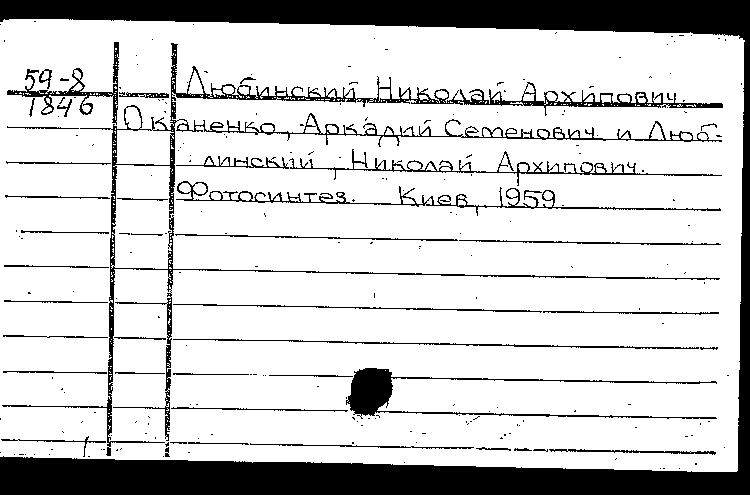 59-8
1846
Любинский, Николай Архипович.
Оканенко, Аркадий Семенович и Люб-
линский, Николай Архипович.
Фотосинтез. Киев, 1959.